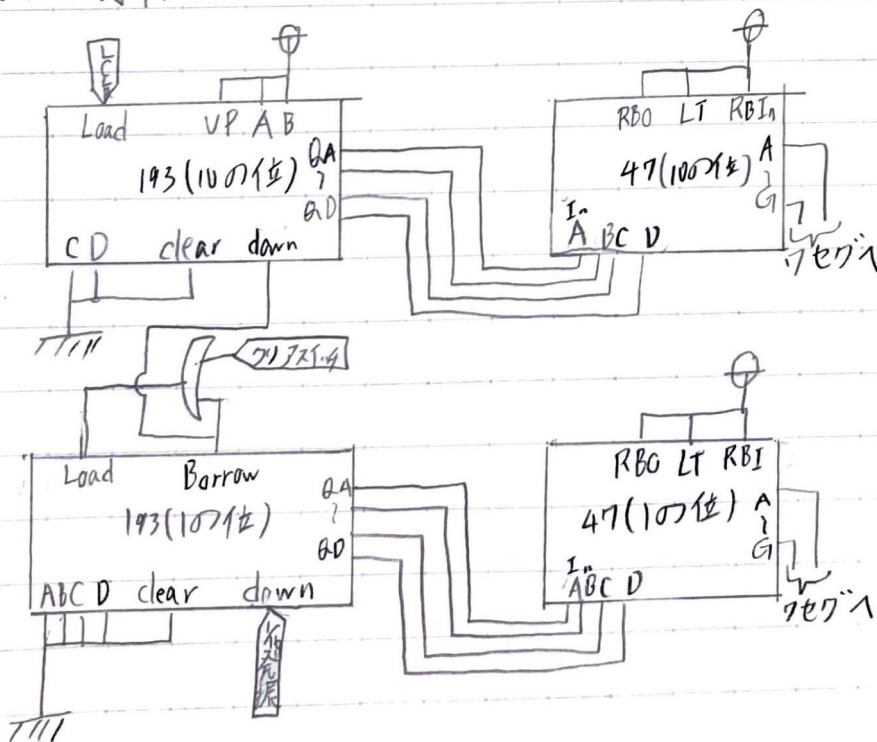 Load
UP A B
QA
193(10の位)
QD
C D
clear
down
RBO LT RBIn
A
47(10の位)
G
In
A BC D
7セグへ
クリアスイッチ
Load
Borrow
QA
193(1の位)
QD
ABC D
clear
down
RBO LT RBI
A
47(1の位)
G
In
ABC D
7セグへ